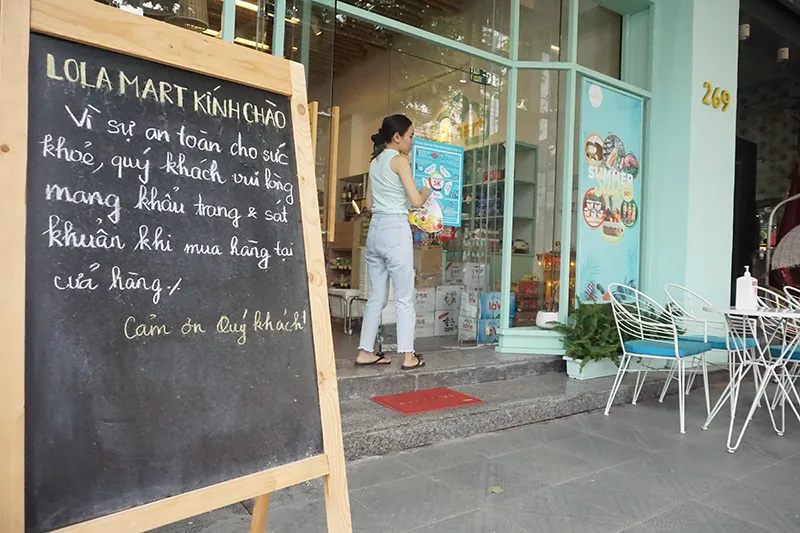 LOLA MART KÍNH CHÀO
Vì sự an toàn cho sức
khoẻ, quý khách vui lòng
mang khẩu trang & sát
khuẩn khi mua hàng tại
cửa hàng./
Cảm ơn Quý khách!
5K
SUMMER
269